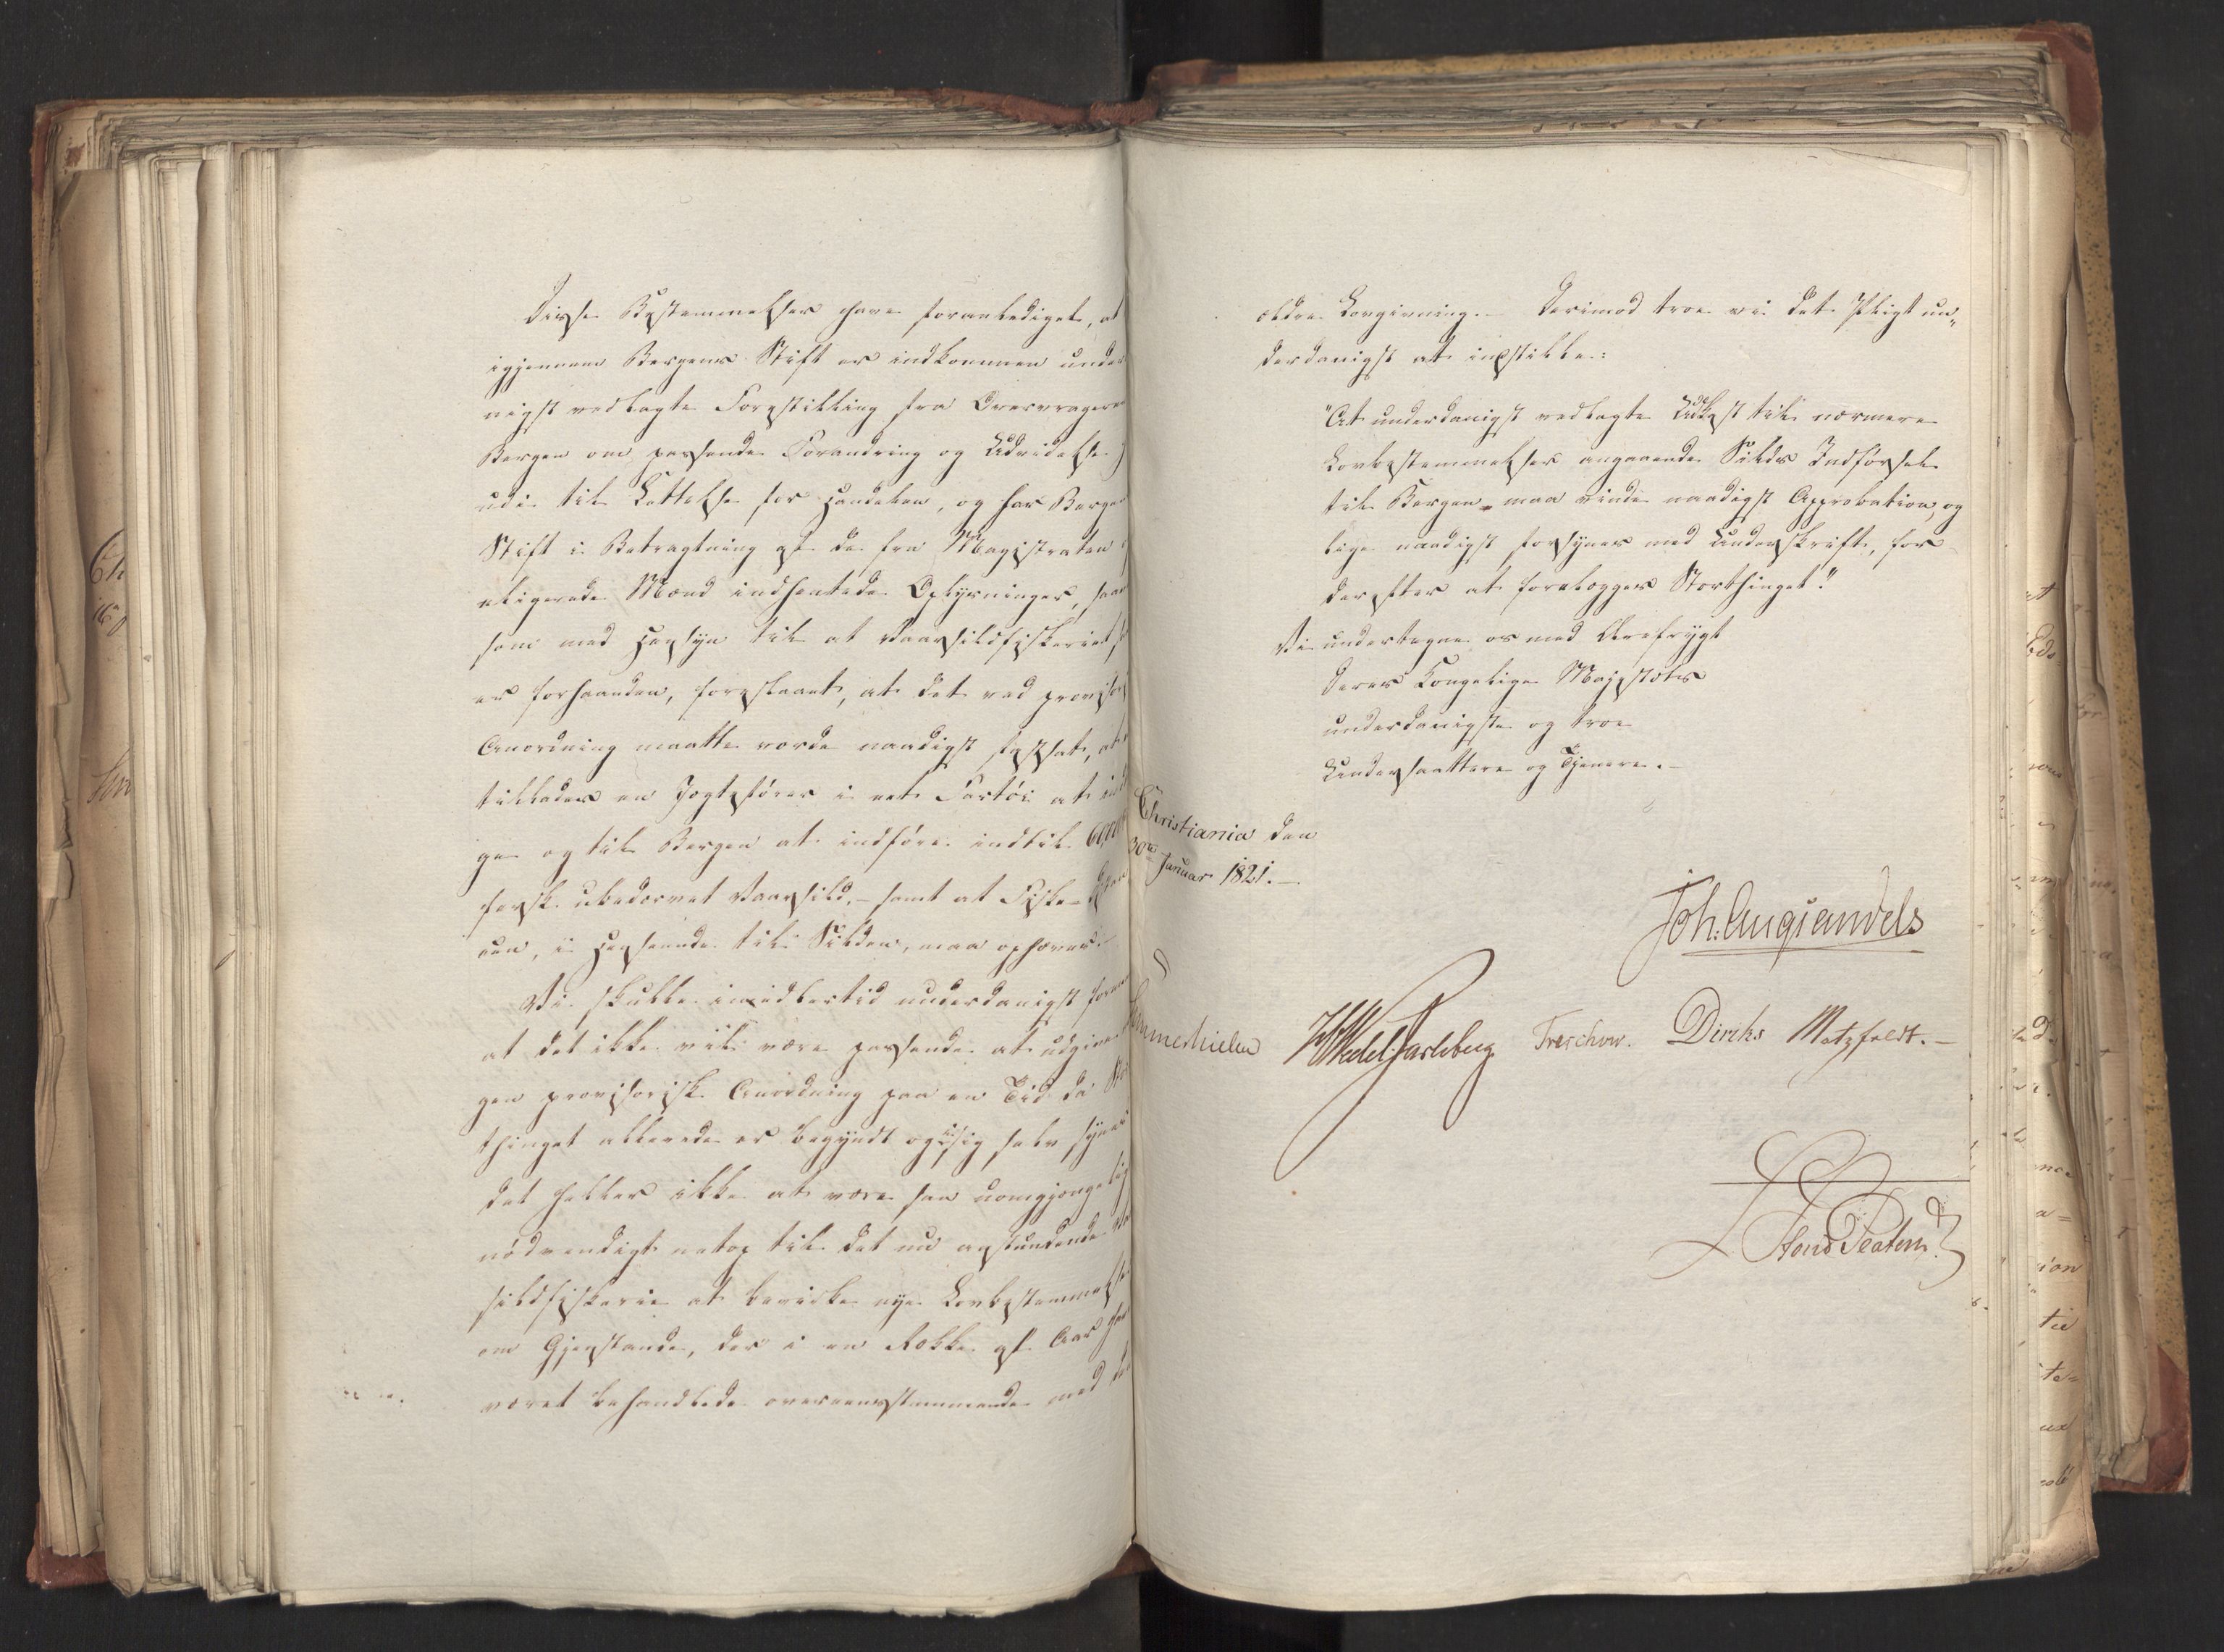 Disse Bestemmelser have foranlediget, at
igjennem Bergens Stift er indkommen under
nigst vedlagte Forestilling fra Overvragerne
Bergen om passende Forandring og Udvidelse
udi til Lettelse for Handelen, og har Bergens
Stift i Betragtning af de fra Magistraten
eligerede Mænd indhentede Oplysninger, saa
som med Hensyn til at Vaarsildfiskeriet
er forhaanden, foreslaaet, at det ved provisorisk
Anordning maatte vorde naadigst fastsat, at
tillades en Jægtefører i eet Fartöi at
ge og til Bergen at indføre indtil
fersk ubedærvet Vaarsild, - samt at Fiske-
en, i Henseende til Silden, maa ophæves.
Vi skulle imidlertid underdanigst formene
at det ikke vil være passende at udgive
gen provisorisk Anordning paa en Tid da Stor
thinget allerede er begyndt og i sig selv synes
det heller ikke at være saa uomgjængelig
nödvendigt netop til det nu anstundende
sildfiskerie at bevirke nye Lovbestemmelser
om Gjenstande, der i en Række af Aar har
været behandlede overeensstemmende med den
ældre Lovgivning. - Derimod troe vi det Pligt un„
derdanigst at indstille:
"At underdanigst vedlagte Udkast til nærmere
Lovbestemmelser angaaende Silds Indførsel
til Bergen maa vinde naadigst Approbation, og
lige naadigst forsynes med Underskrift, for
derefter at forelægges Storthinget."
Vi undertegne os med Ærefrygt
Deres Kongelige Majestæts
underdanigste og troe
Undersaattere og Tjenere. -
Christiania den
30te Januar 1821. -
Joh: Aug: Sandels
Sommerhielm HWedel Jarlsberg Treschow. Diriks Motzfeldt. -